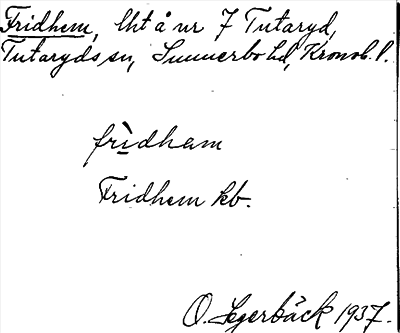 Fridhem, lht å nr 7 Tutaryd,
Tutaryds sn, Sunnerbo hd, Kronob. l.
frìdham
Fridhem kb.
O. Segerbäck 1937.